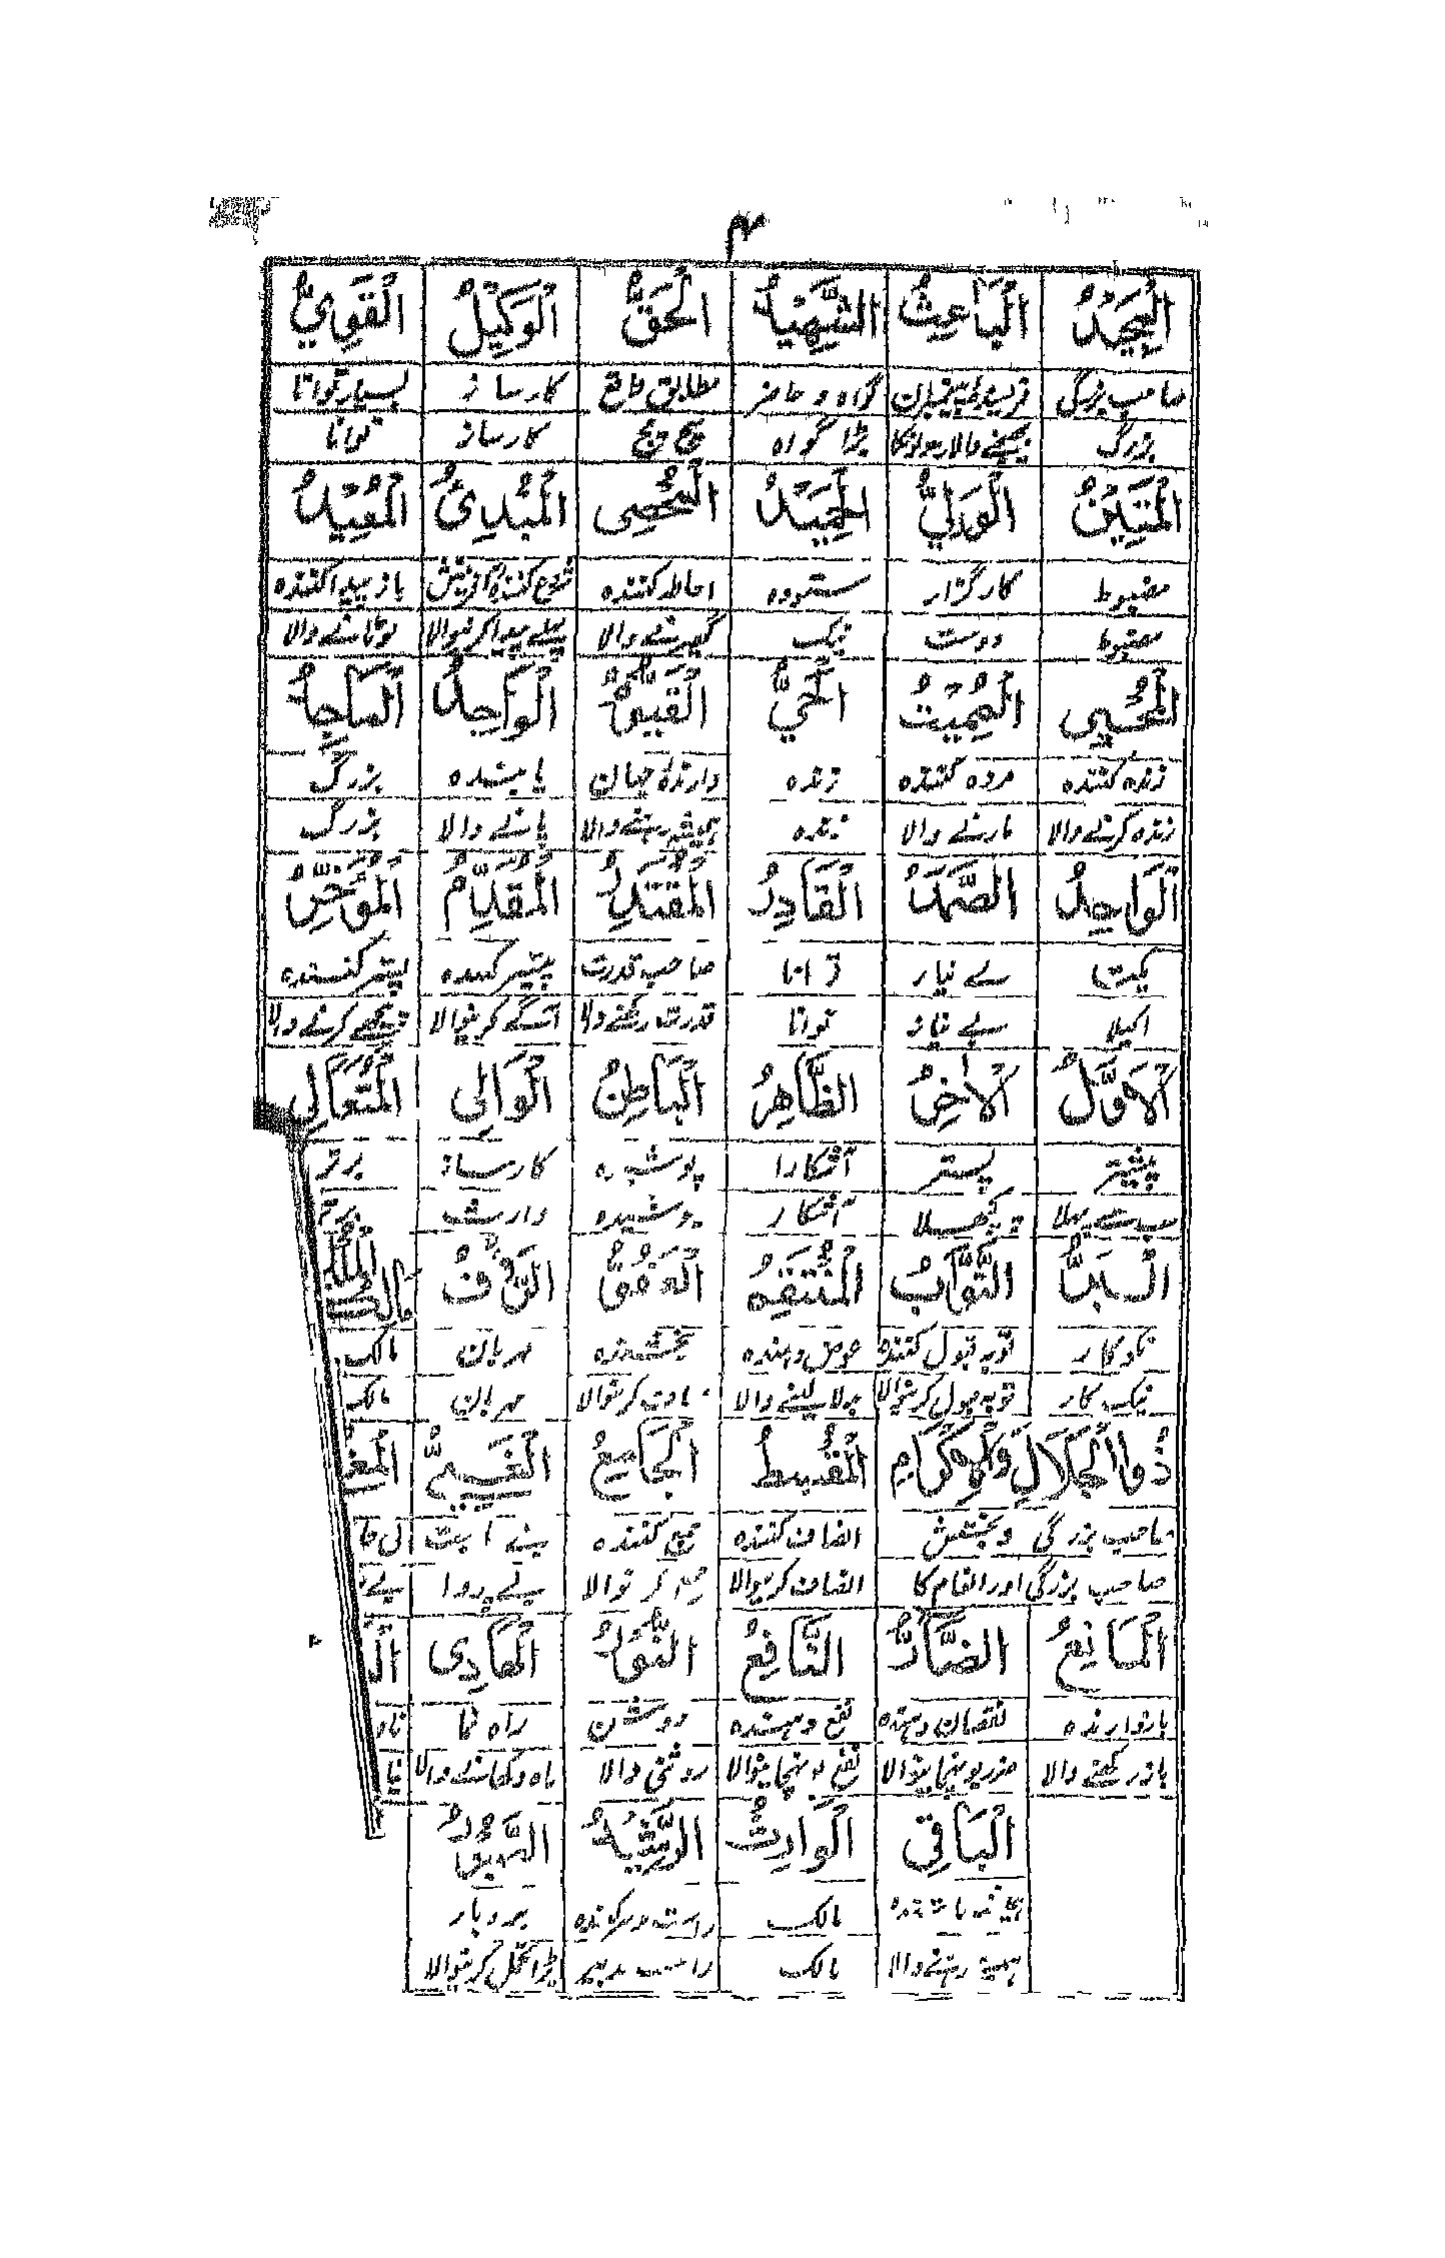 ۴
الْمَجِيْدُ الْبَاعِثُ الشَّهِيْدُ الْحَقُّ الْوَكِيْلُ الْقَوِيُّ
صاحب بزرگی گواہ و حاضر مطابق واقع کارساز بسیار توانا
بزرگ بڑا گواہ کارساز توانا
الْمَتِيْنُ الْوَلِيُّ الْحَمِيْدُ الْمُحْصِى الْمُبْدِئُ الْمُعِيْدُ
مضبوط کارگزار ستودہ احاطہ کنندہ شروع کنندہ آفرینش باز پیدا کنندہ
مضبوط دوست نیک گھیرنے والا پہلے پیدا کرنیوالا لوٹانے والا
الْمُحْيِى الْمُمِيْتُ الْحَيُّ الْقَيُّوْمُ الْوَاجِدُ الْمَاجِدُ
زندہ کنندہ مردہ کنندہ زندہ دارندۂ جہان یابندہ بزرگ
زندہ کرنے والا مارنے والا زندہ ہمیشہ رہنے والا پانے والا بزرگ
الْوَاحِدُ الصَّمَدُ الْقَادِرُ الْمُقْتَدِرُ الْمُقَدِّمُ الْمُؤَخِّرُ
بے نیاز توانا صاحب قدرت
اکیلا بے نیاز توانا قدرت رکھنے والا آگے کرنیوالا پیچھے کرنے والا
الْاَوَّلُ الْاٰخِرُ الظَّاهِرُ الْبَاطِنُ الْوَالِى الْمُتَعَالِى
پیشتر پستر آشکارا پوشیدہ کارساز برتر
سب سے پہلا پچھلا آشکار پوشیدہ وارث برتر
الْبَرُّ التَّوَّابُ الْمُنْتَقِمُ الْعَفُوُّ الرَّءُوْفُ مَالِكُ الْمُلْكِ
نکوکار توبہ قبول کنندہ عوض دہندہ بخشندہ مہربان مالک
نیک کار توبہ قبول کرنیوالا بدلا لینے والا کرنیوالا مہربان مالک
ذُوالْجَلَالِ وَالْاِكْرَامِ الْمُقْسِطُ الْجَامِعُ الْغَنِيُّ الْمُغْ
صاحب بزرگی و بخشش انصاف کنندہ جمع کنندہ
صاحب بزرگی اور انعام کا انصاف کرنیوالا جمع کرنوالا بے پروا
الْمَانِعُ الضَّارُّ النَّافِعُ النُّوْرُ الْهَادِى
بازدارندہ نقصان دہندہ نفع دہندہ روشن راہ نما
باز رکھنے والا ضرر پہنچانیوالا نفع پہنچانیوالا روشنی والا راہ دکھانے والا
الْبَاقِى الْوَارِثُ الرَّشِيْدُ الصَّبُوْرُ
مالک بردبار
ہمیشہ رہنے والا مالک راست تدبیر بڑا تحمل کرنیوالا